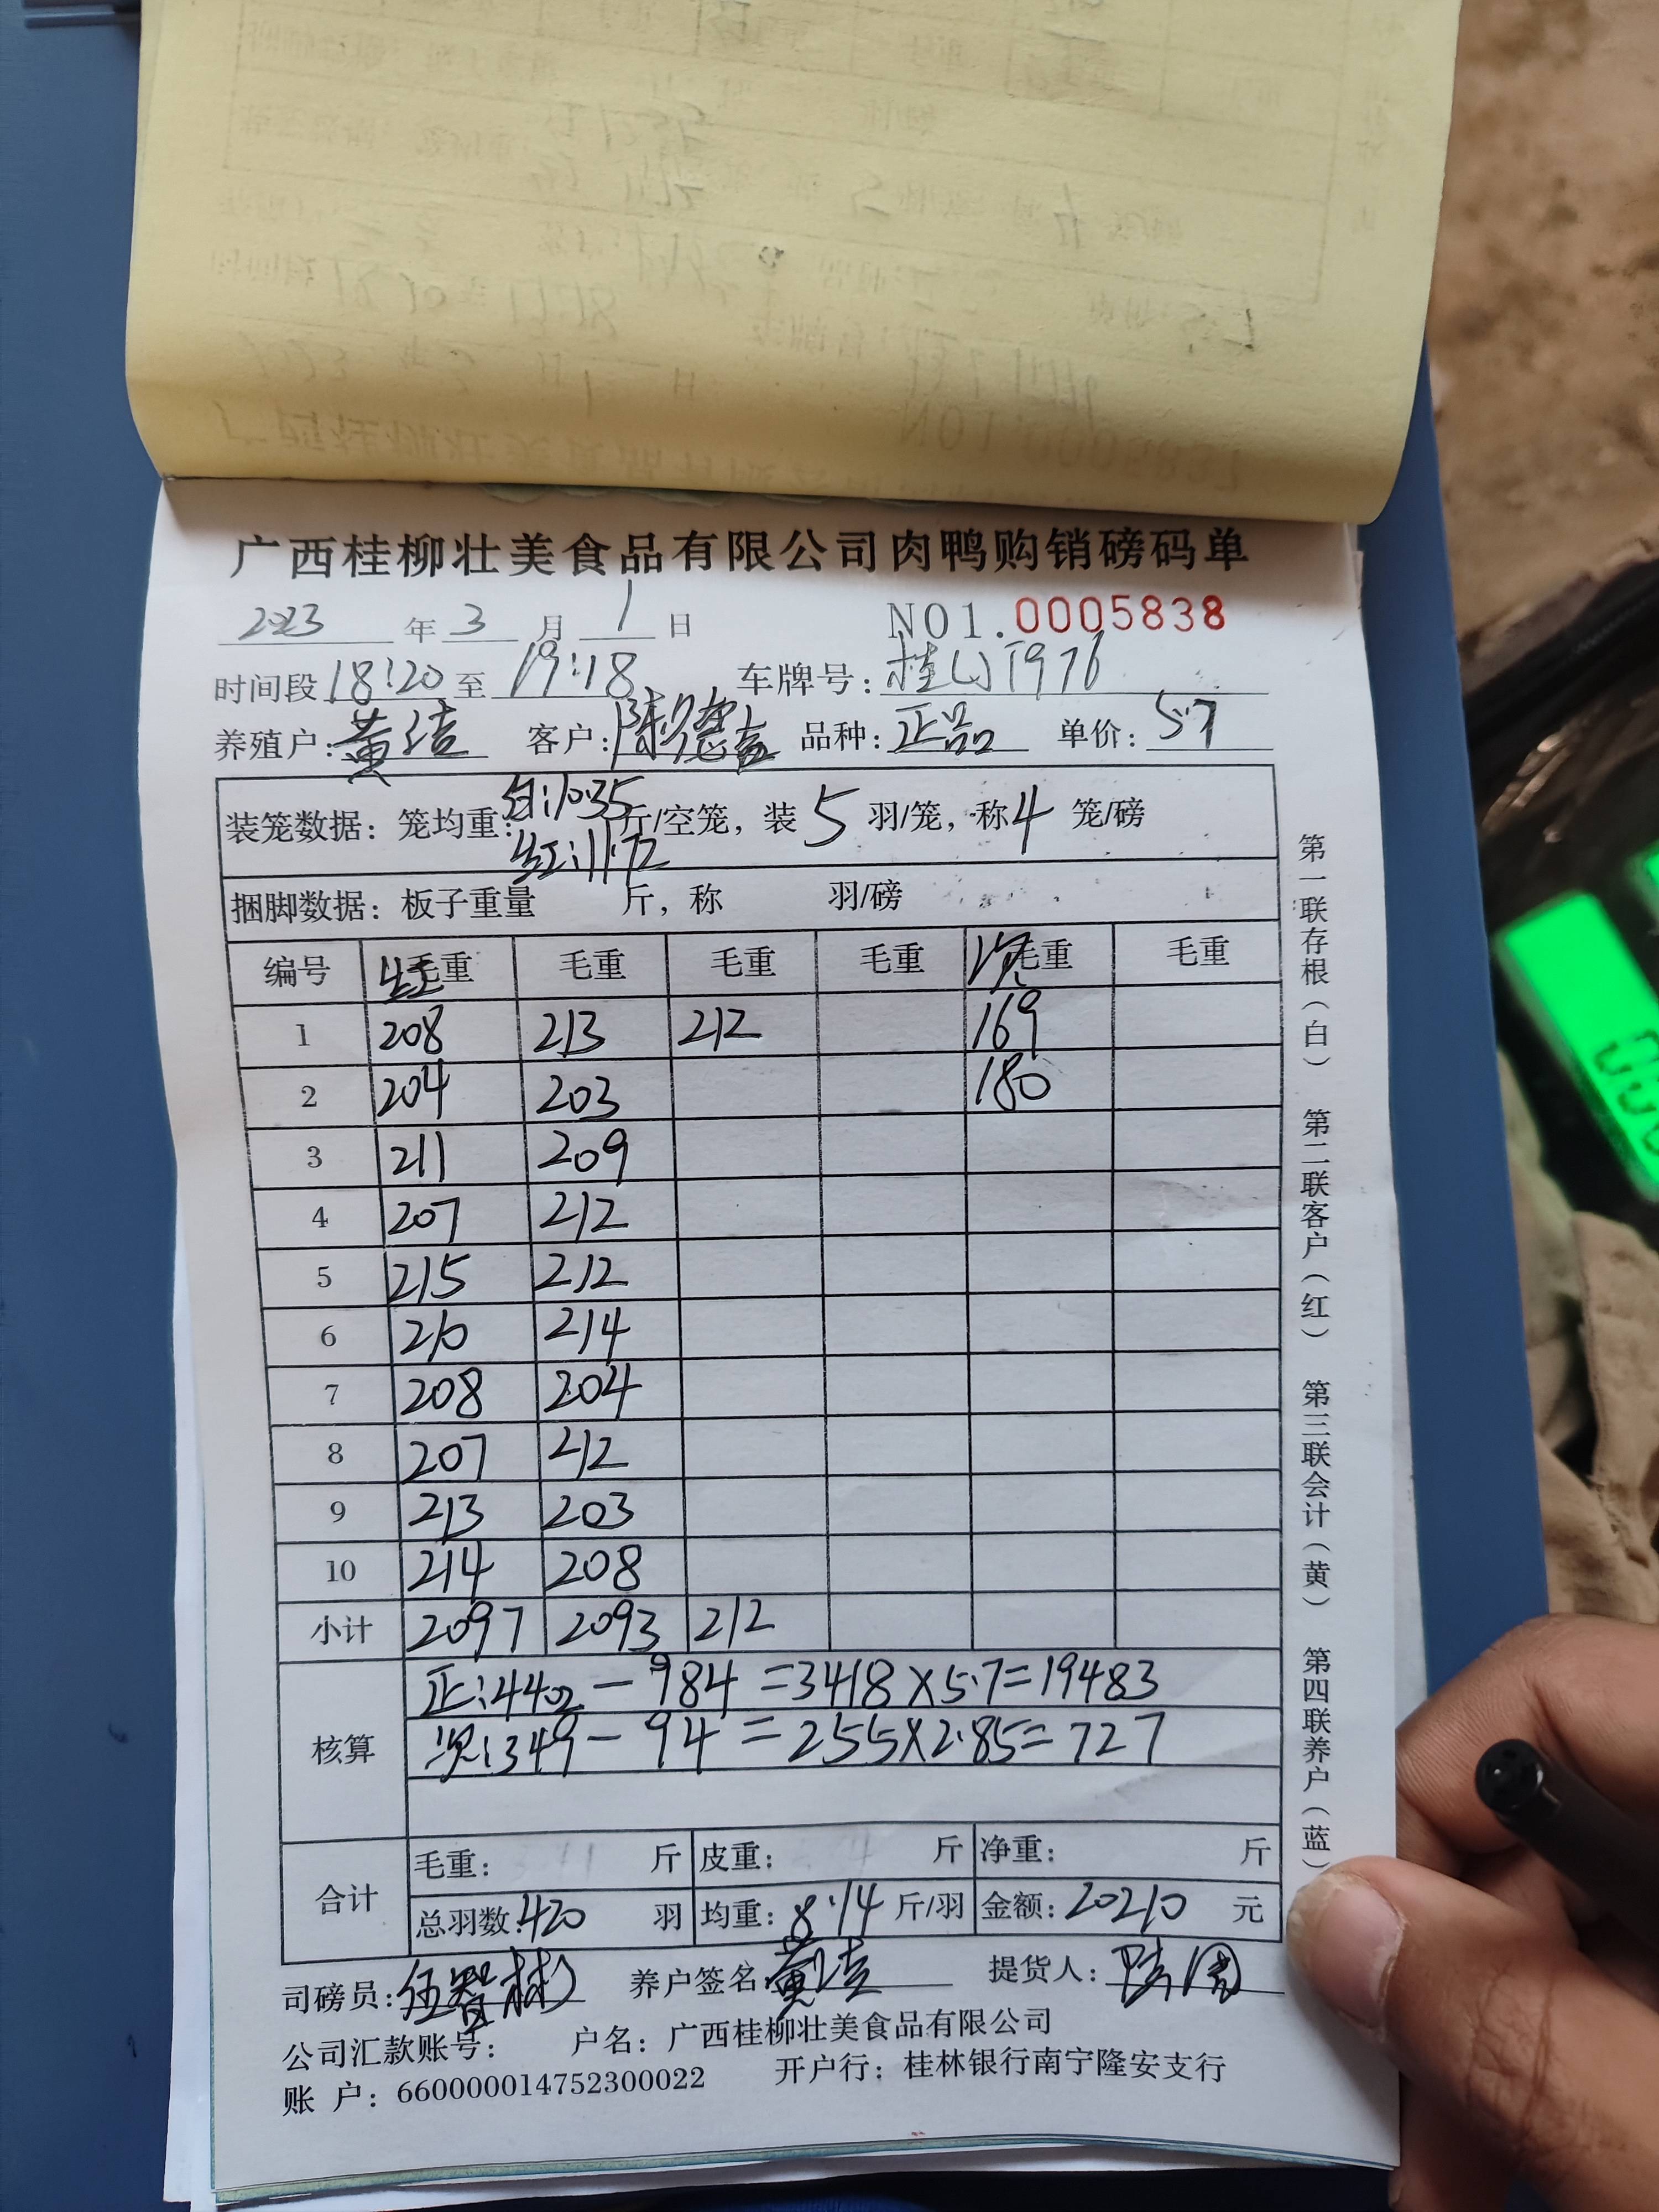 广西桂柳壮美食品有限公司肉鸭购销磅码单
2023 年 3 月 1 日 NO1.0005838
时间段 18:20 至 19:18 车牌号: 桂 T976
养殖户: 黄洁 客户: 陈德 品种: 正品 单价: 5.7
装笼数据: 笼均重: 白:10.35 斤/空笼, 装 5 羽/笼, 称 4 笼/磅
红:11.72
捆脚数据: 板子重量 斤, 称 羽/磅
编号 红毛重 毛重 毛重 毛重 次毛重 毛重
1 208 213 212 169
2 204 203 180
3 211 209
4 207 212
5 215 212
6 210 214
7 208 204
8 207 212
9 213 203
10 214 208
小计 2097 2093 212
核算 正:4402-984=3418×5.7=19483
次:349-94=255×2.85=727
合计 毛重: 斤 皮重: 斤 净重: 斤
总羽数: 420 羽 均重: 8.14 斤/羽 金额: 20210 元
司磅员: 伍智彬 养户签名: 黄洁 提货人:
公司汇款账号: 户名: 广西桂柳壮美食品有限公司
账 户: 660000014752300022 开户行: 桂林银行南宁隆安支行
第一联存根(白) 第二联客户(红) 第三联会计(黄) 第四联养户(蓝)